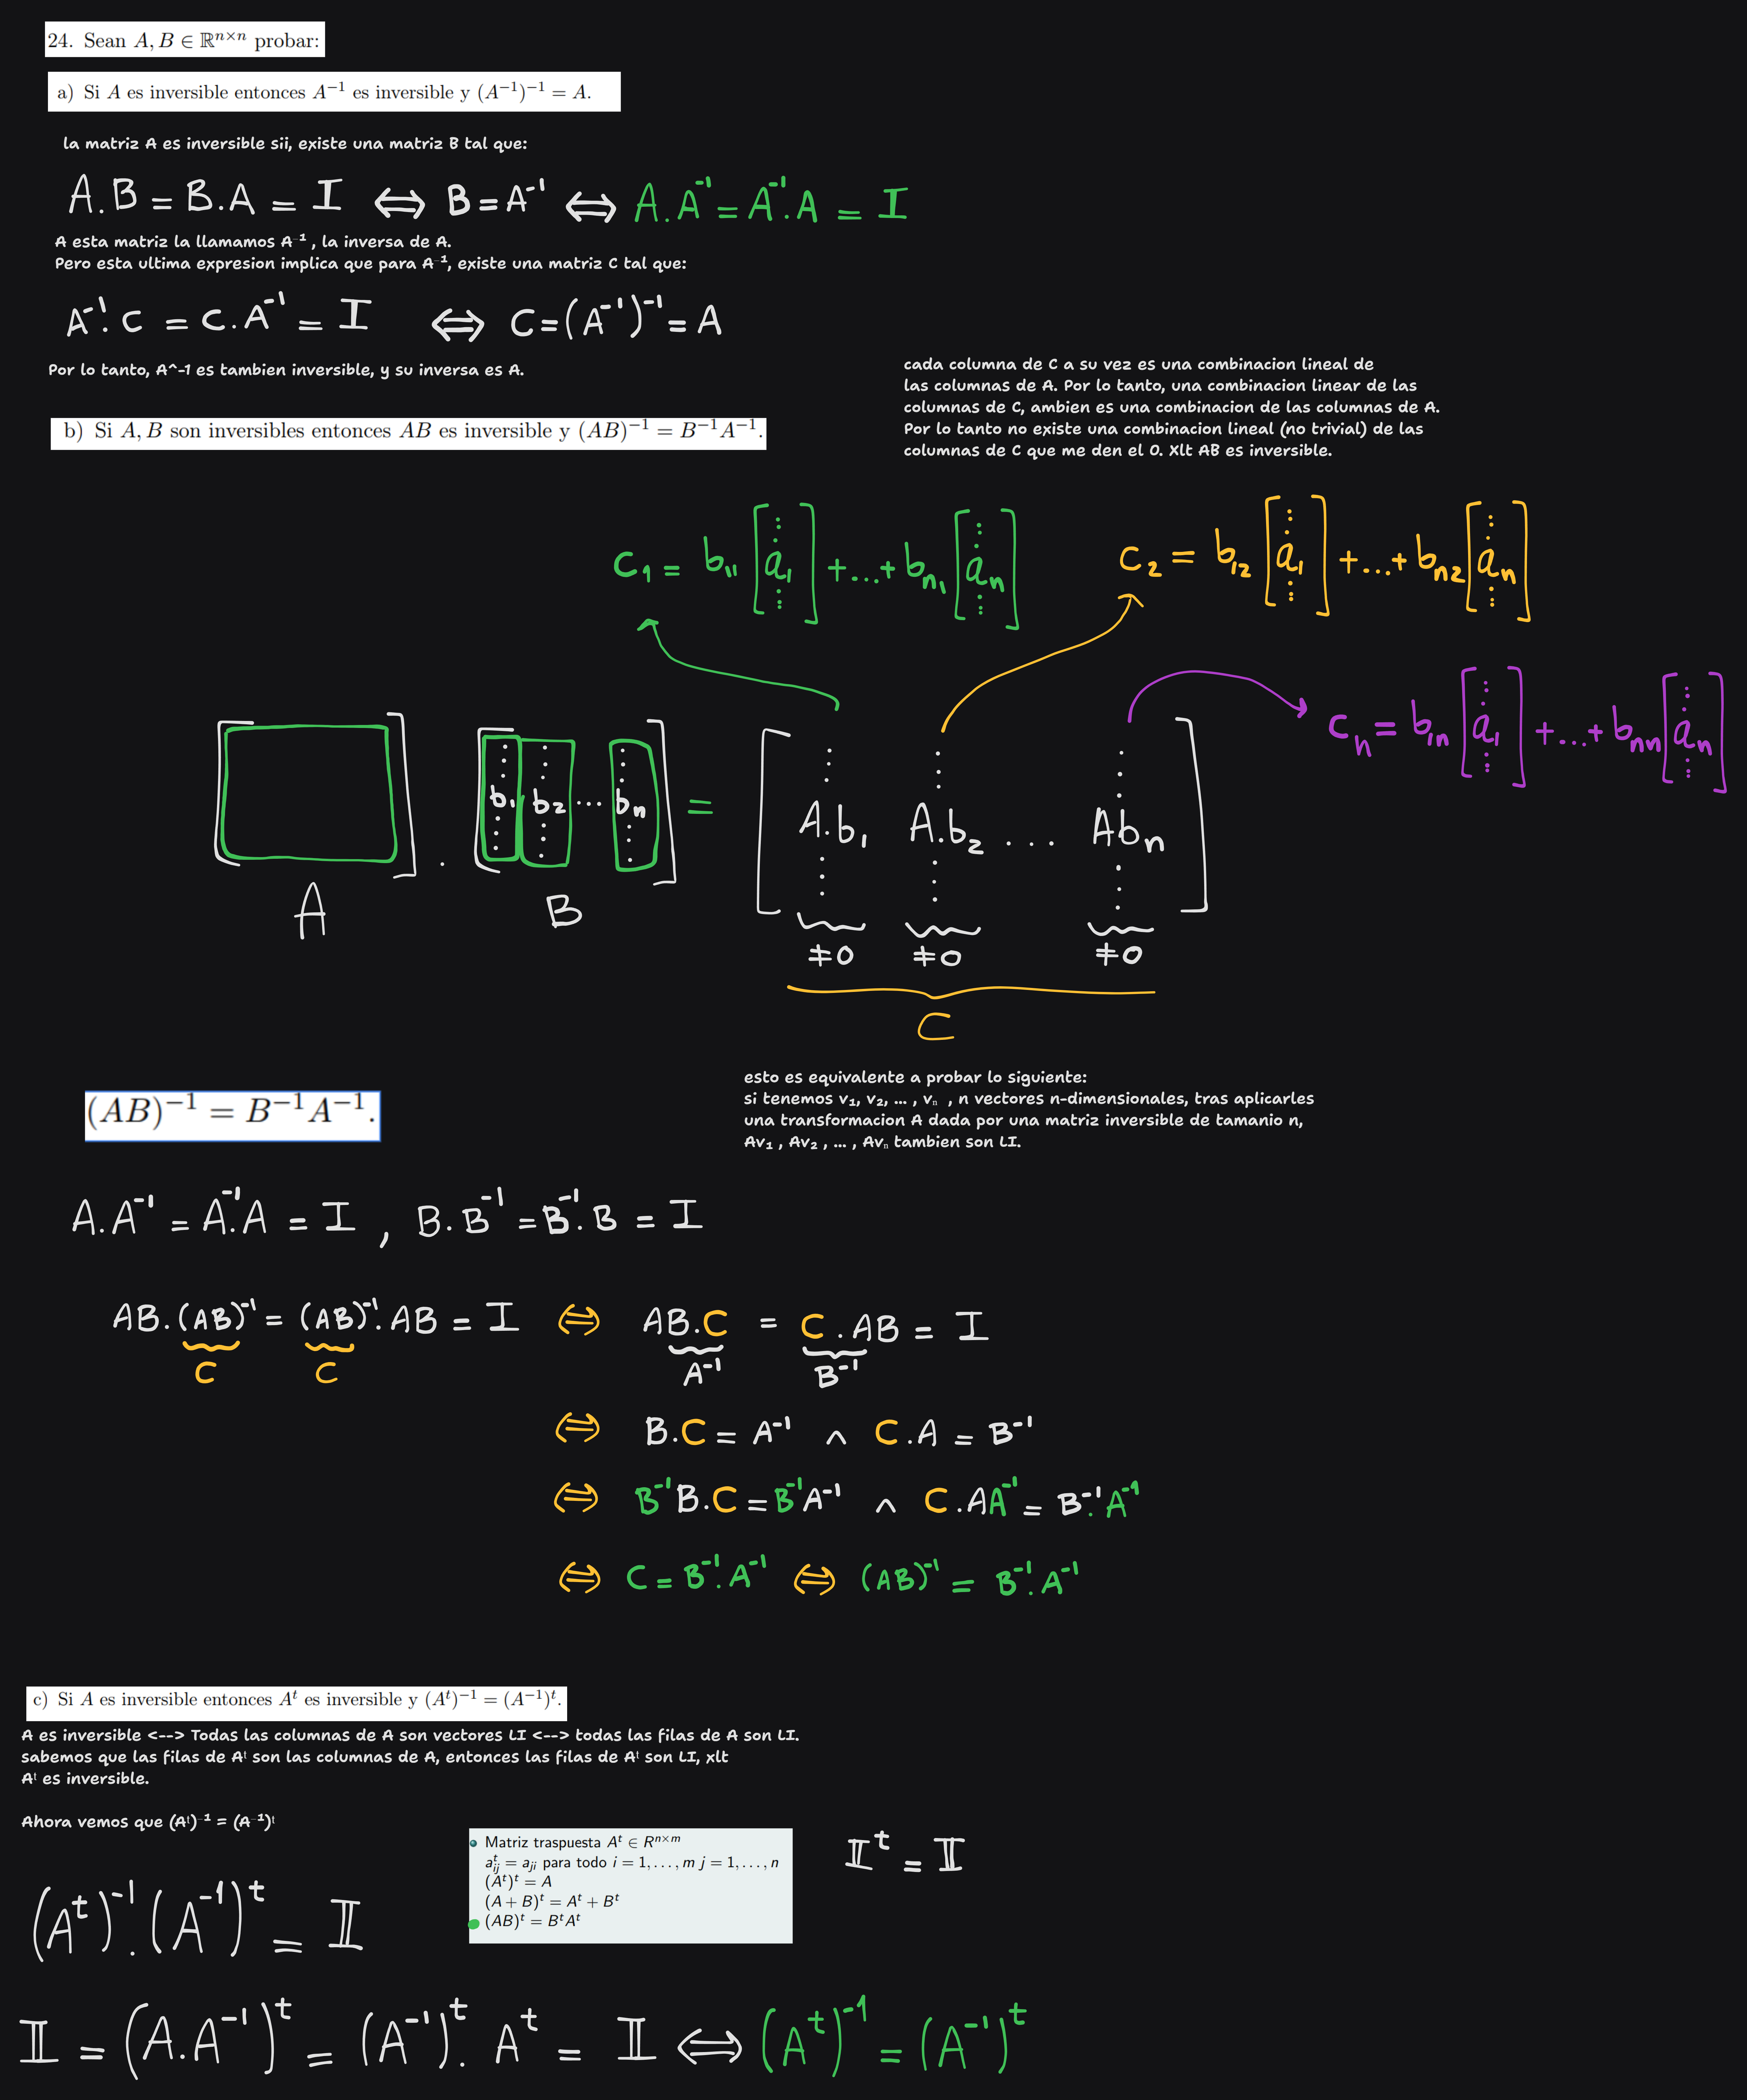 24. Sean A, B ∈ ℝⁿˣⁿ probar:
a) Si A es inversible entonces A⁻¹ es inversible y (A⁻¹)⁻¹ = A.
la matriz A es inversible sii, existe una matriz B tal que:
A.B = B.A = I ⇔ B = A⁻¹ ⇔ A.A⁻¹ = A⁻¹.A = I
A esta matriz la llamamos A⁻¹ , la inversa de A.
Pero esta ultima expresion implica que para A⁻¹, existe una matriz C tal que:
A⁻¹.C = C.A⁻¹ = I ⇔ C = (A⁻¹)⁻¹ = A
Por lo tanto, A^-1 es tambien inversible, y su inversa es A.
b) Si A, B son inversibles entonces AB es inversible y (AB)⁻¹ = B⁻¹A⁻¹.
cada columna de C a su vez es una combinacion lineal de
las columnas de A. Por lo tanto, una combinacion linear de las
columnas de C, ambien es una combinacion de las columnas de A.
Por lo tanto no existe una combinacion lineal (no trivial) de las
columnas de C que me den el 0. Xlt AB es inversible.
c₁ = b₁₁ [a₁] + ... + bₙ₁ [aₙ]
c₂ = b₁₂ [a₁] + ... + bₙ₂ [aₙ]
cₙ = b₁ₙ [a₁] + ... + bₙₙ [aₙ]
[ ] . [b₁ b₂ ... bₙ] = [A.b₁ A.b₂ ... Abₙ]
A B ≠0 ≠0 ≠0
C
esto es equivalente a probar lo siguiente:
si tenemos v₁, v₂, ... , vₙ , n vectores n-dimensionales, tras aplicarles
una transformacion A dada por una matriz inversible de tamanio n,
Av₁ , Av₂ , ... , Avₙ tambien son LI.
(AB)⁻¹ = B⁻¹A⁻¹.
A.A⁻¹ = A⁻¹.A = I , B.B⁻¹ = B⁻¹.B = I
AB.(AB)⁻¹ = (AB)⁻¹.AB = I ⇔ AB.C = C.AB = I
C C A⁻¹ B⁻¹
⇔ B.C = A⁻¹ ∧ C.A = B⁻¹
⇔ B⁻¹B.C = B⁻¹A⁻¹ ∧ C.AA⁻¹ = B⁻¹.A⁻¹
⇔ C = B⁻¹.A⁻¹ ⇔ (AB)⁻¹ = B⁻¹.A⁻¹
c) Si A es inversible entonces Aᵗ es inversible y (Aᵗ)⁻¹ = (A⁻¹)ᵗ.
A es inversible <--> Todas las columnas de A son vectores LI <--> todas las filas de A son LI.
sabemos que las filas de Aᵗ son las columnas de A, entonces las filas de Aᵗ son LI, xlt
Aᵗ es inversible.
Ahora vemos que (Aᵗ)⁻¹ = (A⁻¹)ᵗ
• Matriz traspuesta Aᵗ ∈ Rⁿˣᵐ
aᵗᵢⱼ = aⱼᵢ para todo i = 1, . . . , m j = 1, . . . , n
(Aᵗ)ᵗ = A
(A + B)ᵗ = Aᵗ + Bᵗ
(AB)ᵗ = BᵗAᵗ
Iᵗ = I
(Aᵗ)⁻¹.(A⁻¹)ᵗ = I
I = (A.A⁻¹)ᵗ = (A⁻¹)ᵗ.Aᵗ = I ⇔ (Aᵗ)⁻¹ = (A⁻¹)ᵗ